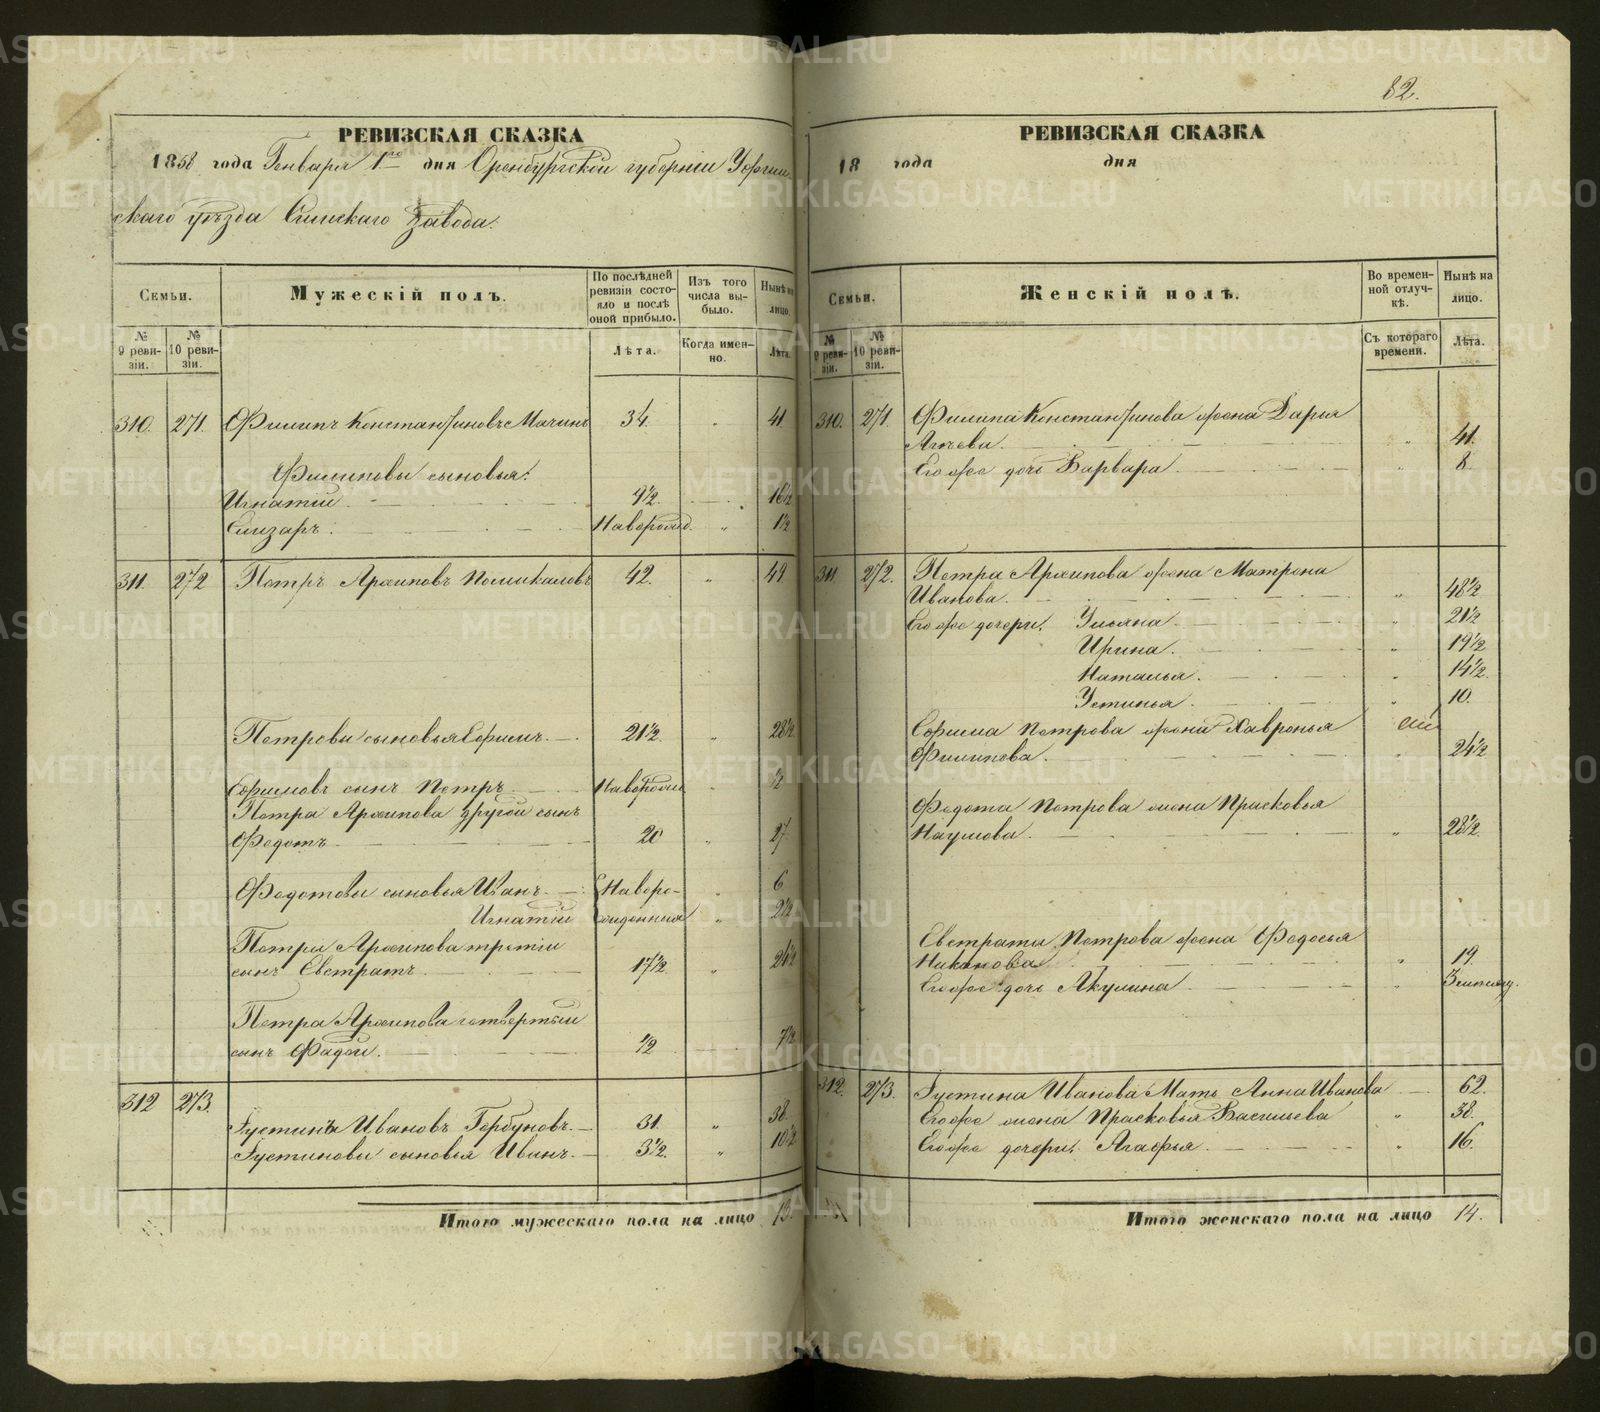 82.
РЕВИЗСКАЯ СКАЗКА
1858 года Генваря 1го дня Оренбургской губернии Уфим-
скаго уѣзда Симскаго Завода.
Семьи.
Мужескій полъ.
По послѣдней ревизіи состо-яло и послѣ оной прибыло.
Изъ того числа вы-было.
Нынѣ на лицо.
№ 9 реви-зіи.
№ 10 реви-зіи.
Лѣта.
Когда имен-но.
Лѣта.
310. 271. Филипъ Константиновъ Мачинъ 34. 41.
Филиповы сыновья:
Игнатій 9½. 16½
Елизаръ. Наворожд. 1½
311. 272 Петръ Архиповъ 42. 49.
Петровы сыновья Ефимъ. 21½. 28½
Ефимовъ сынъ Петръ ½
Петра Архипова другой сынъ
Федотъ 20 27.
Федотовы сыновья Иванъ Наворо- 6
Игнатій жденныя 2½
Петра Архипова третій
сынъ Евстратъ. 17½. 24½
Петра Архипова четвертый
сынъ Фадей. ½ 7½
312 273.
Густинъ Ивановъ Горбуновъ. 31. 38.
Густиновы сыновья Иванъ. 3½. 10½
Итого мужескаго пола на лицо 13.
РЕВИЗСКАЯ СКАЗКА
18 года дня
Семьи.
Женскій полъ.
Во времен-ной отлуч-кѣ.
Нынѣ на лицо.
№ 9 реви-зіи.
№ 10 реви-зіи.
Съ котораго времени.
Лѣта.
310. 271. Филипа Константинова жена Дарья
41.
Его же дочь Варвара. 8.
311 272. Петра Архипова жена Матрена
Иванова. 48½
Его же дочери: Ульяна 21½
Ирина. 19½
Наталья. 14½.
Устинья. 10.
Ефима Петрова жена Хавронья
Филипова. 24½
Федота Петрова жена Прасковья
Наумова. 28½.
Евстрата Петрова жена Федосья
19.
Его же дочь Акулина
312. 273. Густина Иванова Мать Анна Иванова 62.
Его же жена Прасковья Васильева 38.
Его же дочери: Агафья 16.
Итого женскаго пола на лицо 14.
METRIKI.GASO-URAL.RU